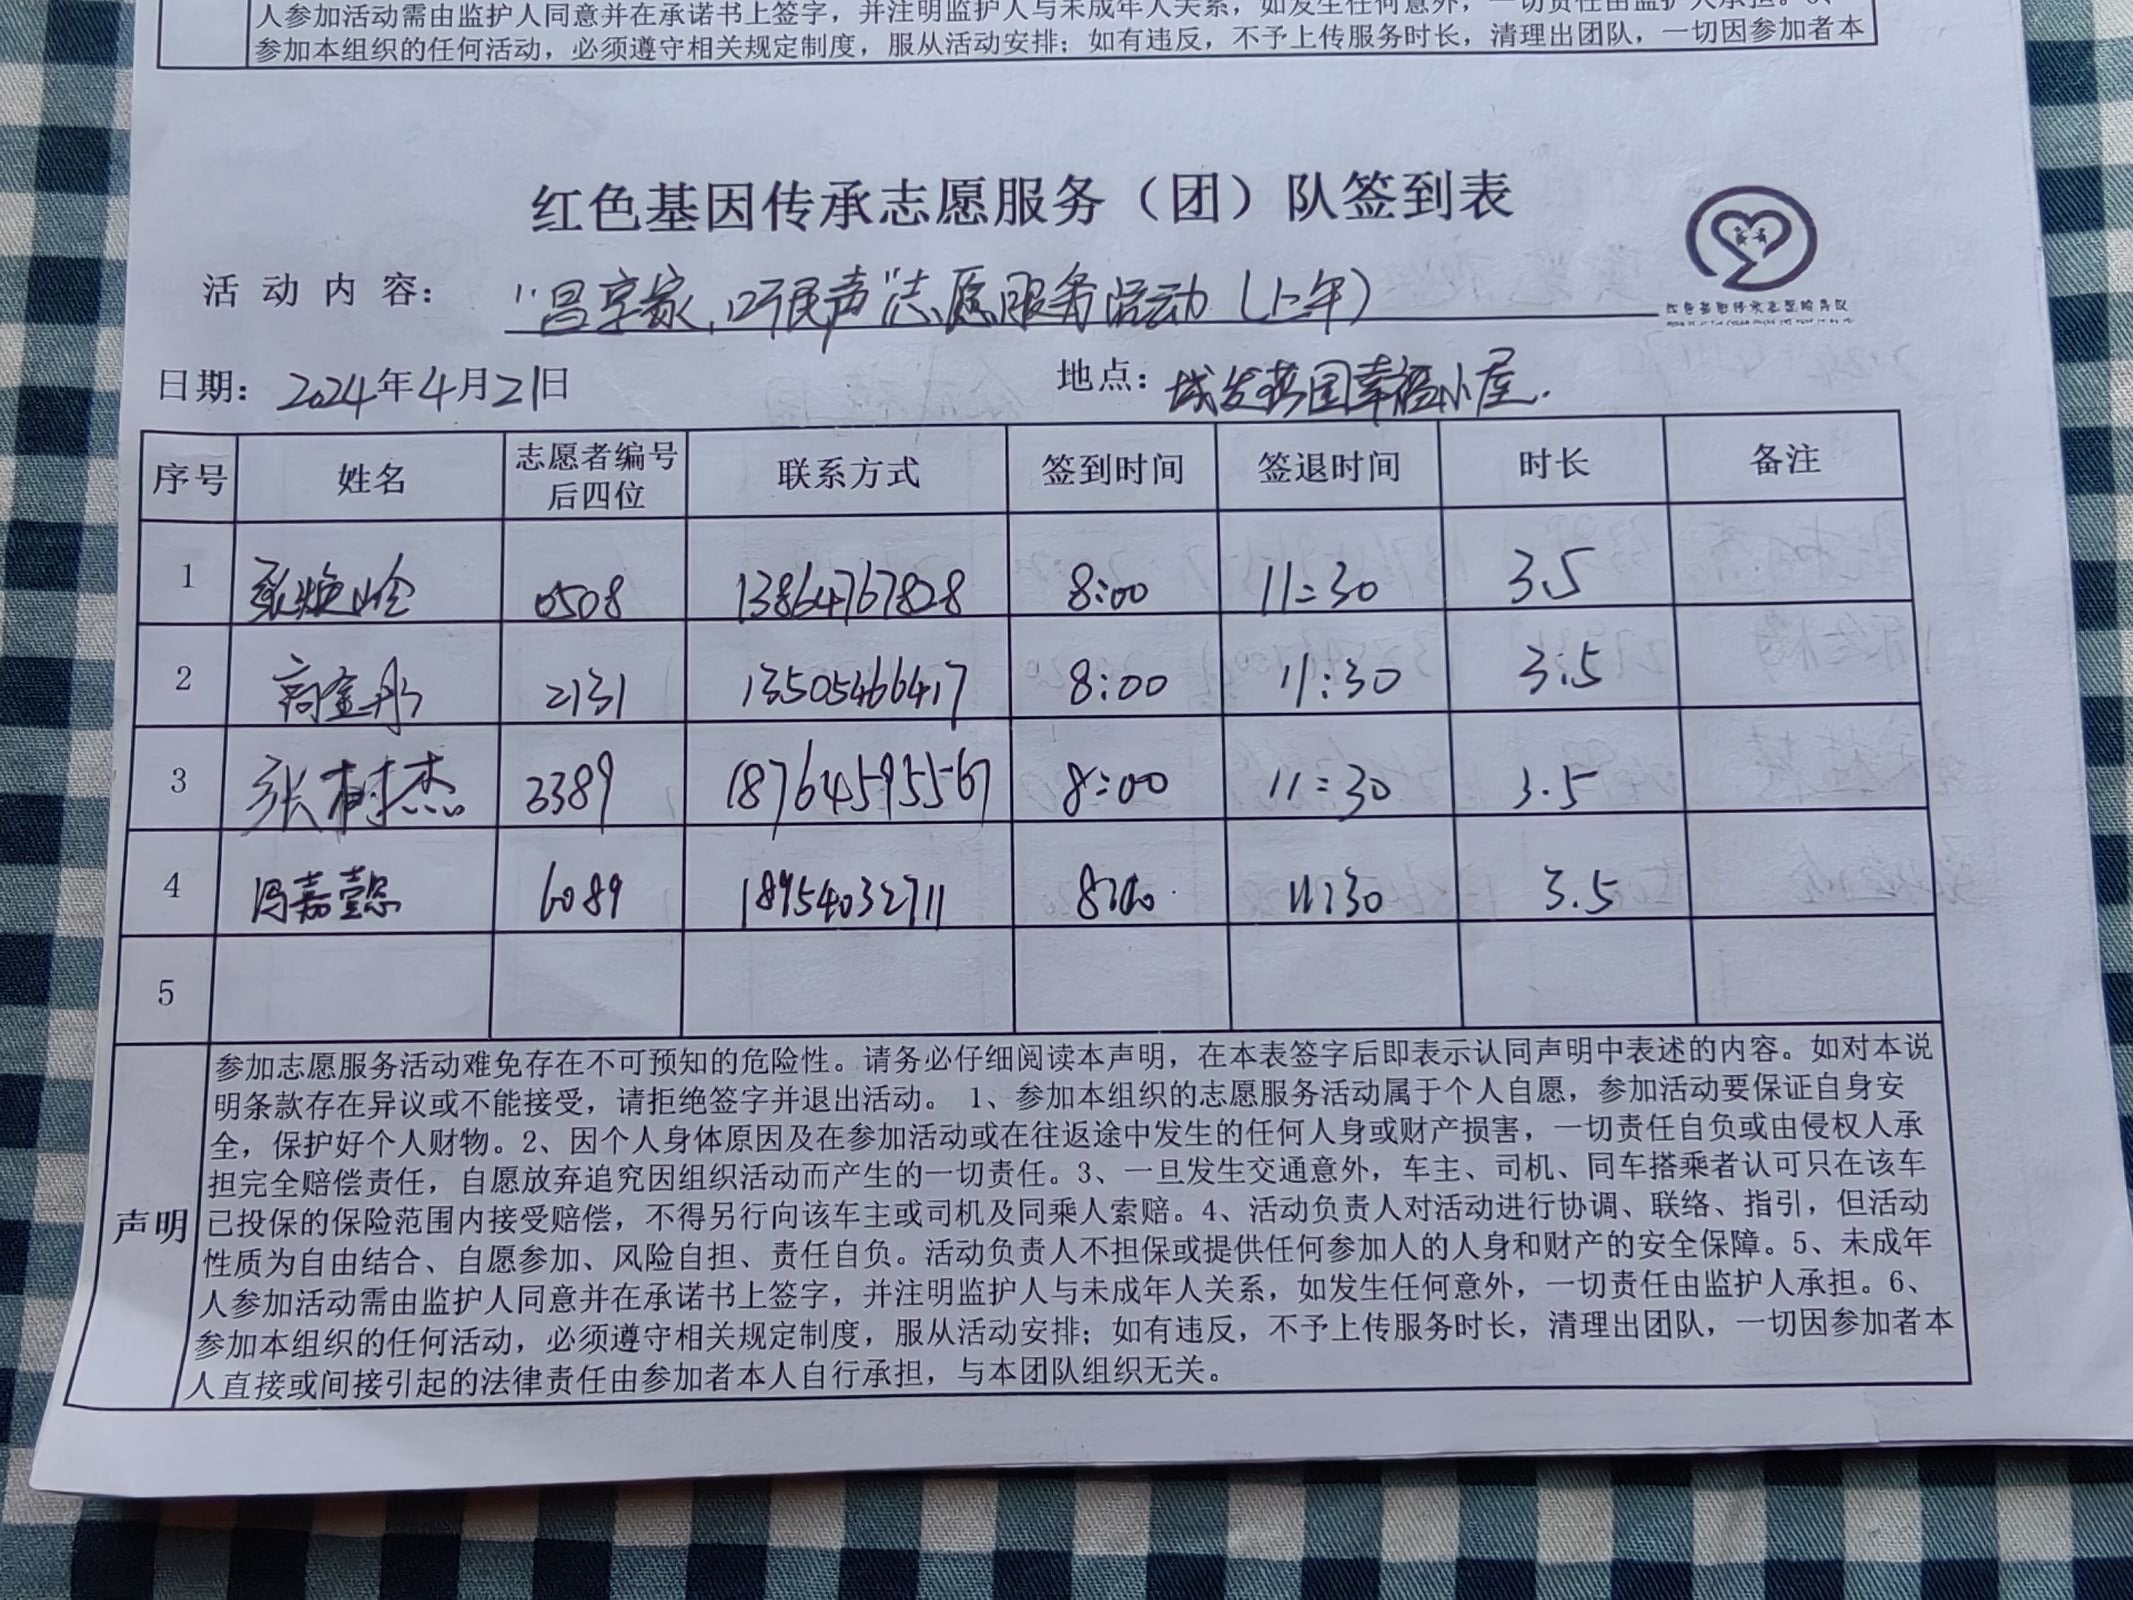 人参加活动需由监护人同意并在承诺书上签字，并注明监护人与未成年人关系，如发生任何意外，一切责任由监护人承担。6、
参加本组织的任何活动，必须遵守相关规定制度，服从活动安排；如有违反，不予上传服务时长，清理出团队，一切因参加者本
红色基因传承志愿服务（团）队签到表
活动内容： 家，听民声"志愿服务活动（上午）
红色基因传承志愿服务队
日期：2024年4月21日 地点：城发 国幸福小屋.
序号 姓名 志愿者编号后四位 联系方式 签到时间 签退时间 时长 备注
1 张焕 0508 13864767828 8:00 11:30 3.5
2 高金彤 2131 13505466417 8:00 11:30 3.5
3 张树杰 3389 18764595567 8:00 11:30 3.5
4 冯嘉懿 6089 18954032711 8:00 11:30 3.5
5
声明
参加志愿服务活动难免存在不可预知的危险性。请务必仔细阅读本声明，在本表签字后即表示认同声明中表述的内容。如对本说
明条款存在异议或不能接受，请拒绝签字并退出活动。 1、参加本组织的志愿服务活动属于个人自愿，参加活动要保证自身安
全，保护好个人财物。2、因个人身体原因及在参加活动或在往返途中发生的任何人身或财产损害，一切责任自负或由侵权人承
担完全赔偿责任，自愿放弃追究因组织活动而产生的一切责任。3、一旦发生交通意外，车主、司机、同车搭乘者认可只在该车
已投保的保险范围内接受赔偿，不得另行向该车主或司机及同乘人索赔。4、活动负责人对活动进行协调、联络、指引，但活动
性质为自由结合、自愿参加、风险自担、责任自负。活动负责人不担保或提供任何参加人的人身和财产的安全保障。5、未成年
人参加活动需由监护人同意并在承诺书上签字，并注明监护人与未成年人关系，如发生任何意外，一切责任由监护人承担。6、
参加本组织的任何活动，必须遵守相关规定制度，服从活动安排；如有违反，不予上传服务时长，清理出团队，一切因参加者本
人直接或间接引起的法律责任由参加者本人自行承担，与本团队组织无关。